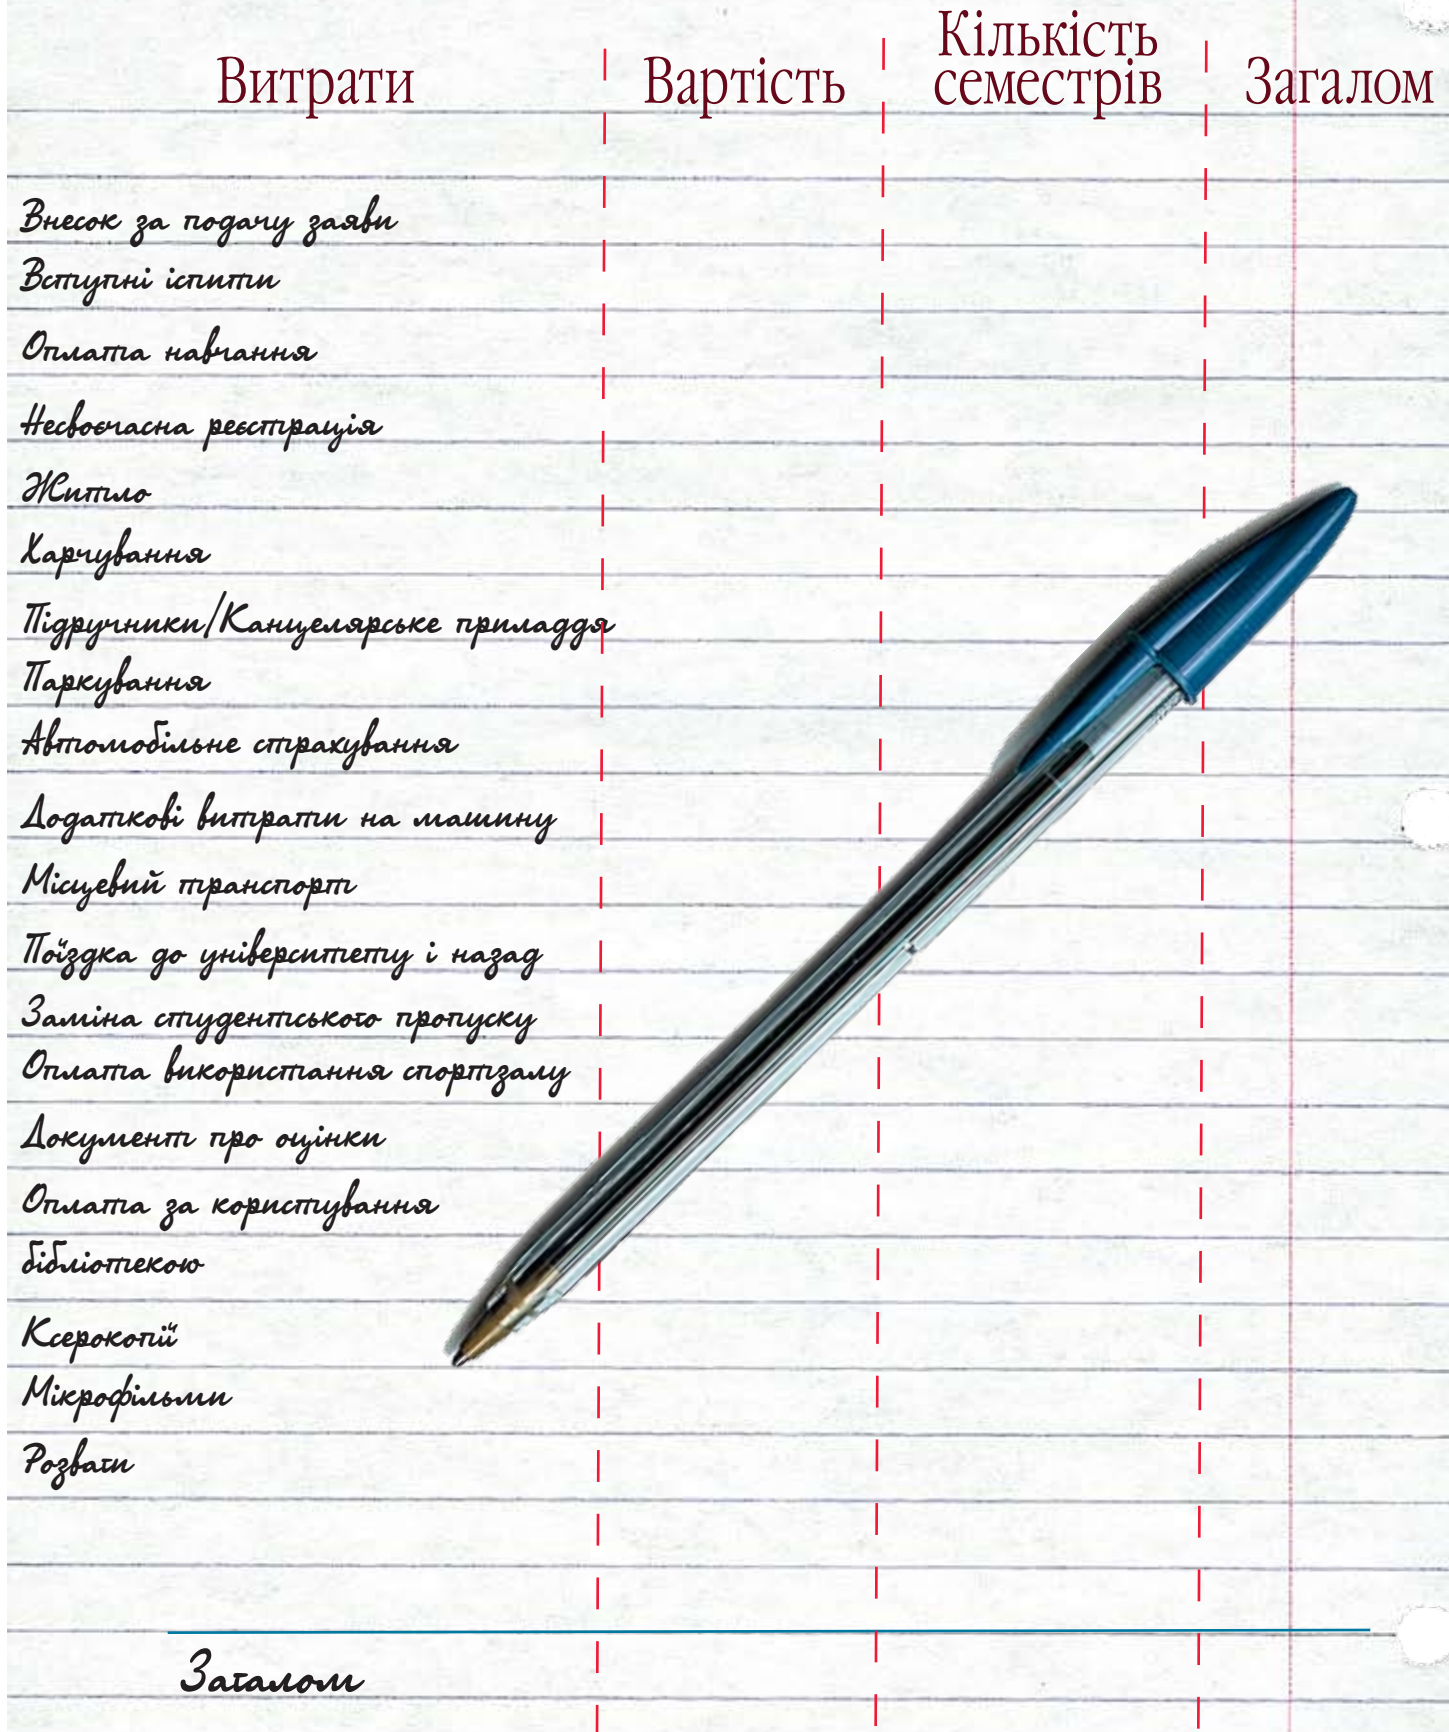 Витрати
Вартість
Кількість
семестрів
Загалом
Внесок за подачу заяви
Вступні іспити
Оплата навчання
Несвоєчасна реєстрація
Житло
Харчування
Підручники/Канцелярське приладдя
Паркування
Автомобільне страхування
Додаткові витрати на машину
Місцевий транспорт
Поїздка до університету і назад
Заміна студентського пропуску
Оплата використання спортзалу
Документ про оцінки
Оплата за користування
бібліотекою
Ксерокопії
Мікрофільми
Розваги
Загалом